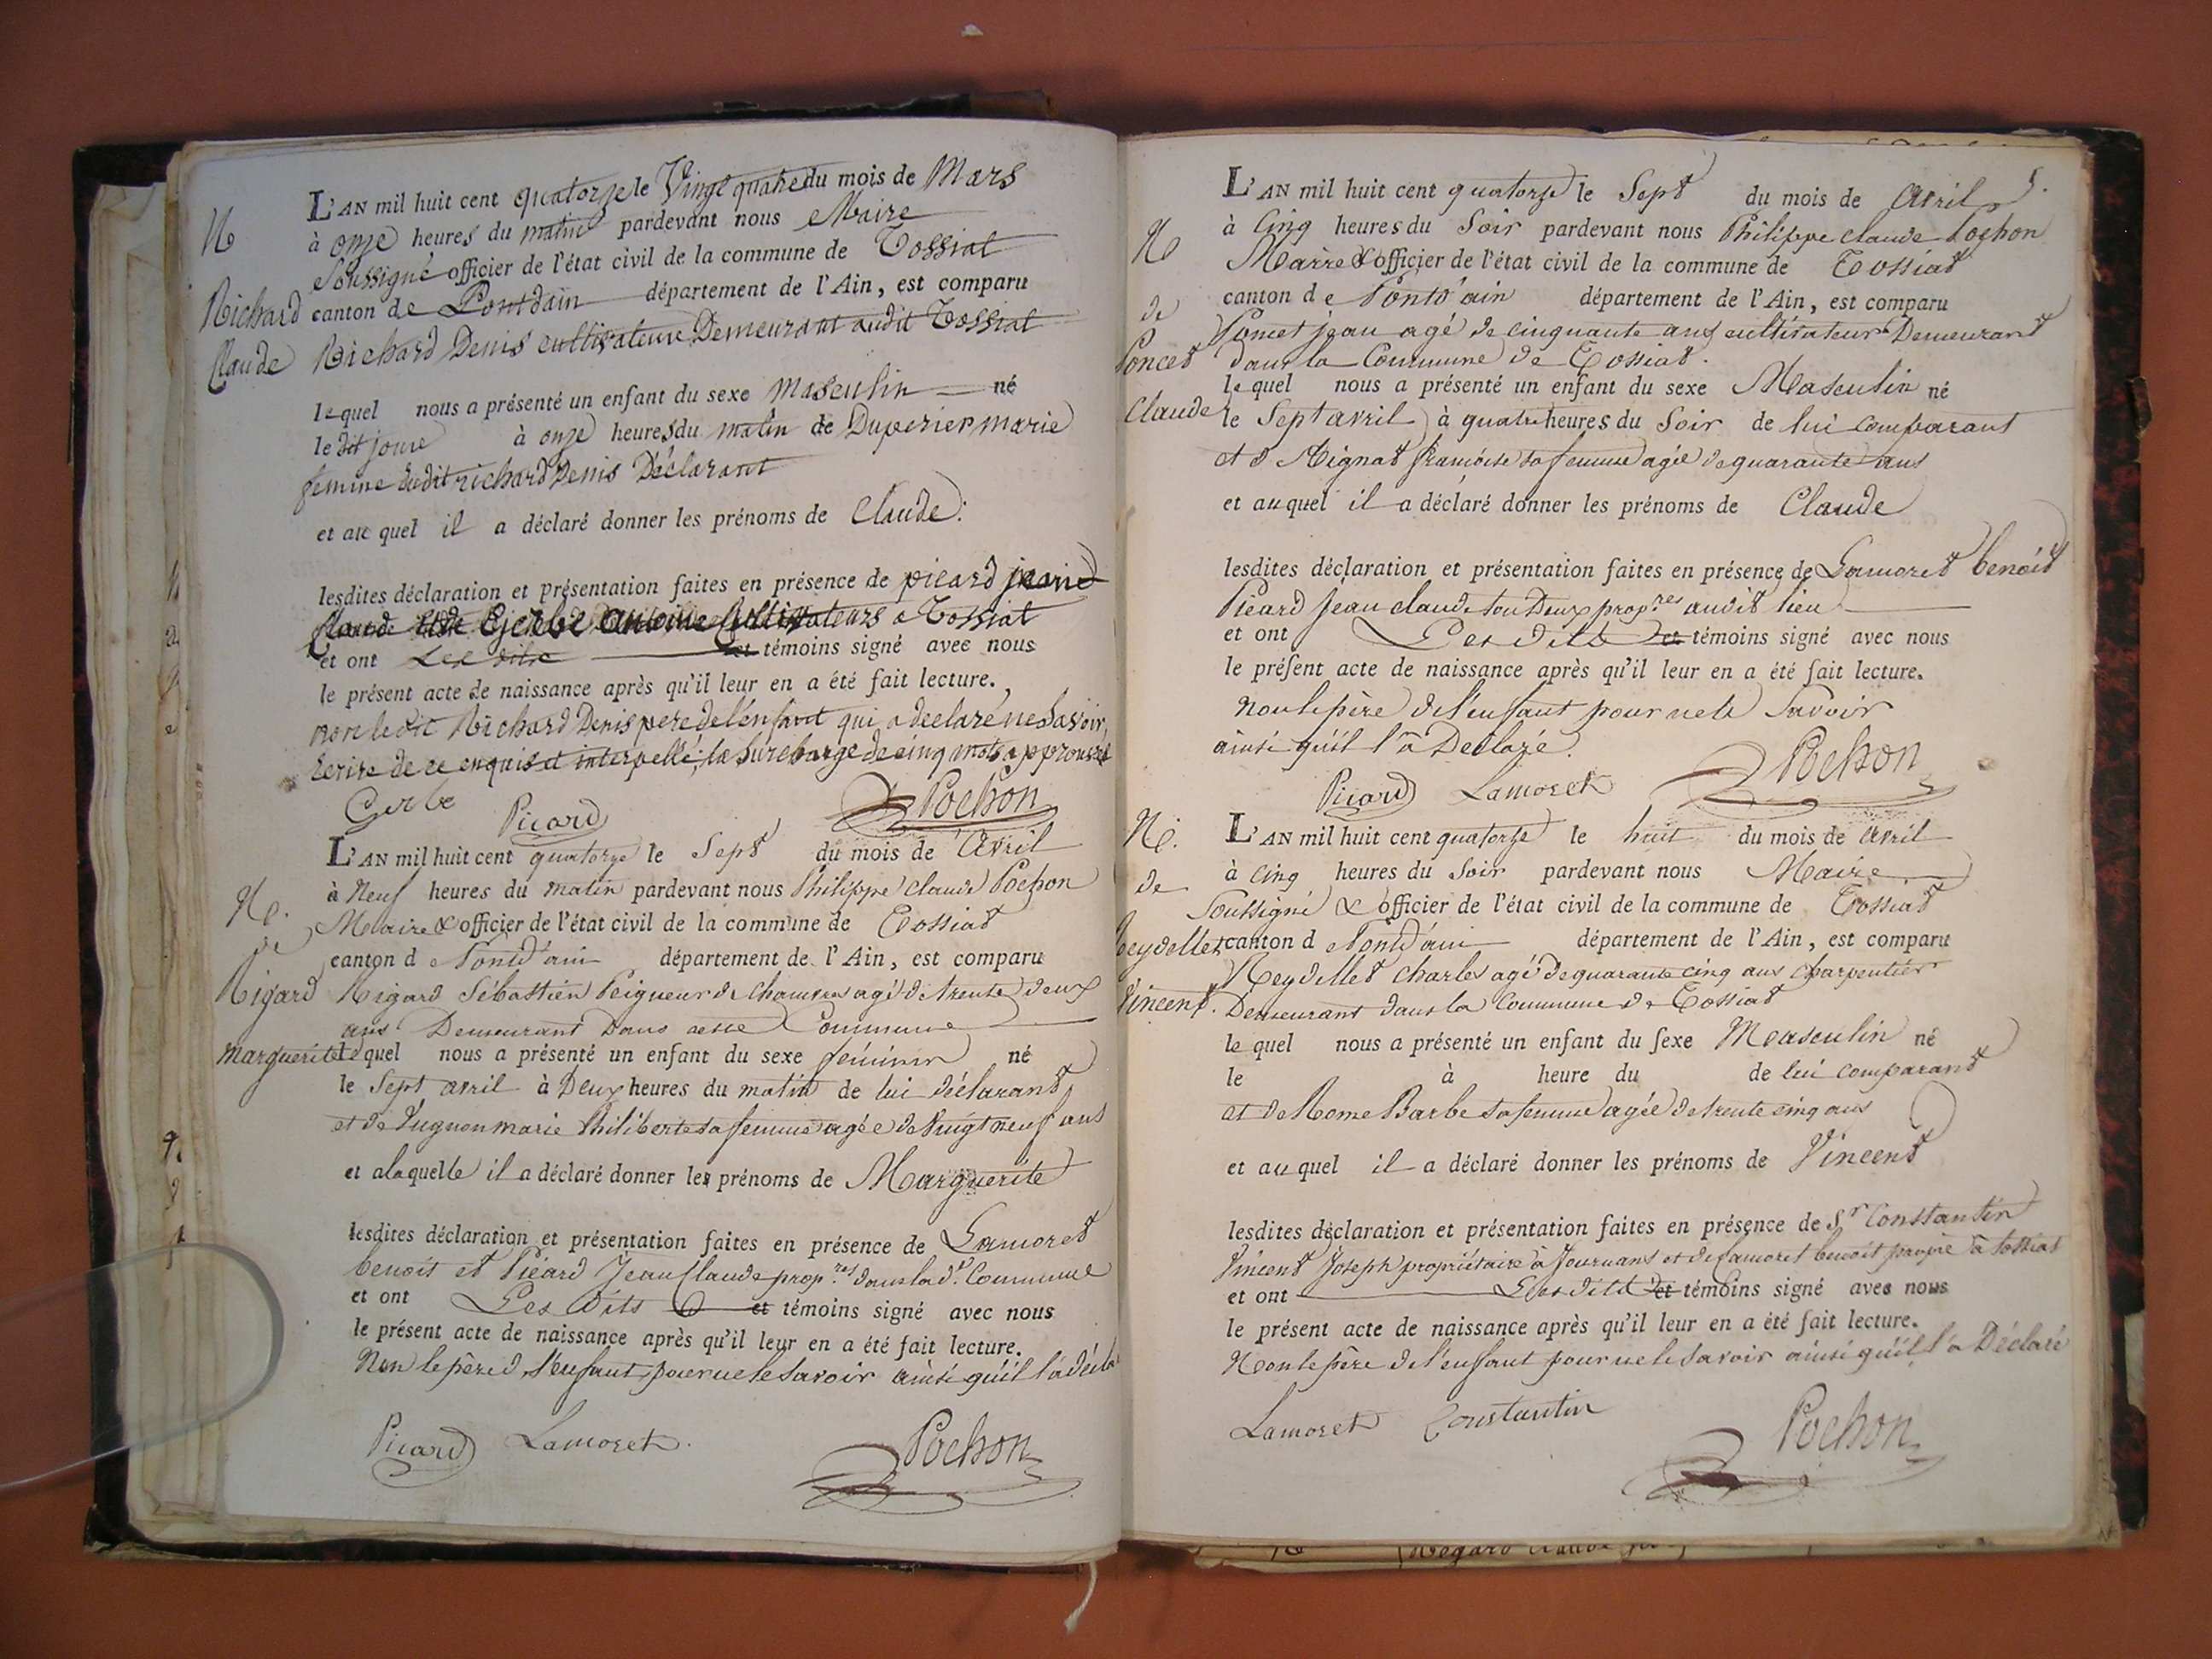 L'AN mil huit cent quatorze le Vingt quatre du mois de Mars
à onze heures du matin pardevant nous Maire
Soussigné officier de l'état civil de la commune de Tossiat
canton de Pontdain département de l'Ain, est comparu
Richard Denis cultivateur Demeurant audit Tossiat
lequel nous a présenté un enfant du sexe Masculin né
le dit jour à onze heures du matin de Duperier marie
femme dudit richard Denis Déclarant
et au quel il a déclaré donner les prénoms de Claude.
lesdites déclaration et présentation faites en présence de picard jean
Claude et de Gerbe antoine Cultivateurs a Tossiat
et ont Les dits et témoins signé avec nous
le présent acte de naissance après qu'il leur en a été fait lecture.
non ledit Richard Denis pere de l'enfant qui a declaré ne savoir
Ecrire de ce enquis et interpellé, la surcharge de cinq mots approuvée
Gerbe Picard Pochon
Ne
Richard
Claude
L'AN mil huit cent quatorze le Sept du mois de Avril
à Neuf heures du matin pardevant nous Philippe Claude Pochon
Maire & officier de l'état civil de la commune de Tossiat
canton de Pontd'ain département de l'Ain, est comparu
Rigard Sébastien Peigneur de Chanvres agé de trente deux
ans Demeurant Dans cette Commune
lequel nous a présenté un enfant du sexe féminin né
le Sept avril à Deux heures du matin de lui déclarant
et de Lugnon marie Philiberte sa femme agée de Vingt neuf ans
et alaquelle il a déclaré donner les prénoms de Marguerite
lesdites déclaration et présentation faites en présence de Lamoret
benoit et Picard Jean Claude prop.res dans la d.e Commune
et ont Les dits et témoins signé avec nous
le présent acte de naissance après qu'il leur en a été fait lecture.
Non le père de l'enfant pour ne le savoir ainsi qu'il l'a décla
Picard Lamoret Pochon
Ne.
de
Rigard
Marguerite
5.
L'AN mil huit cent quatorze le Sept du mois de Avril
à Cinq heures du Soir pardevant nous Philippe claude Pochon
Maire & officier de l'état civil de la commune de Tossiat
canton de Pontd'ain département de l'Ain, est comparu
Poncet jean agé de cinquante ans cultivateur Demeurant
dans la Commune de Tossiat.
lequel nous a présenté un enfant du sexe Masculin né
le Sept avril à quatre heures du Soir de lui comparant
et de Mignat françoise sa femme agée de quarante ans
et au quel il a déclaré donner les prénoms de Claude
lesdites déclaration et présentation faites en présence de Lamoret benoit
Picard Jean claude tou Deux prop.res audit lieu
et ont Les dits et témoins signé avec nous
le présent acte de naissance après qu'il leur en a été fait lecture.
Non le père de l'enfant pour ne le Savoir
ainsi qu'il l'a Declaré.
Picard Lamoret Pochon
Ne
de
Poncet
Claude
L'AN mil huit cent quatorze le huit du mois de avril
à cinq heures du Soir pardevant nous Maire
Soussigné & officier de l'état civil de la commune de Tossiat
canton de Pontd'ain département de l'Ain, est comparu
Reydellet Charles agé de quarante cinq ans charpentier
Demeurant dans la Commune de Tossiat
lequel nous a présenté un enfant du sexe Masculin né
le à heure du de lui comparant
et de Rome Barbe sa femme agée de trente cinq ans
et au quel il a déclaré donner les prénoms de Vincent
lesdites déclaration et présentation faites en présence de Sr Constantin
Vincent Joseph propriétaire à Journans et de Lamoret benoit propre à tossiat
et ont Les dits et témoins signé avec nous
le présent acte de naissance après qu'il leur en a été fait lecture.
Non le père de l'enfant pour ne le savoir ainsi qu'il l'a Déclaré
Lamoret Constantin Pochon
Ne.
de
Reydellet
Vincent.